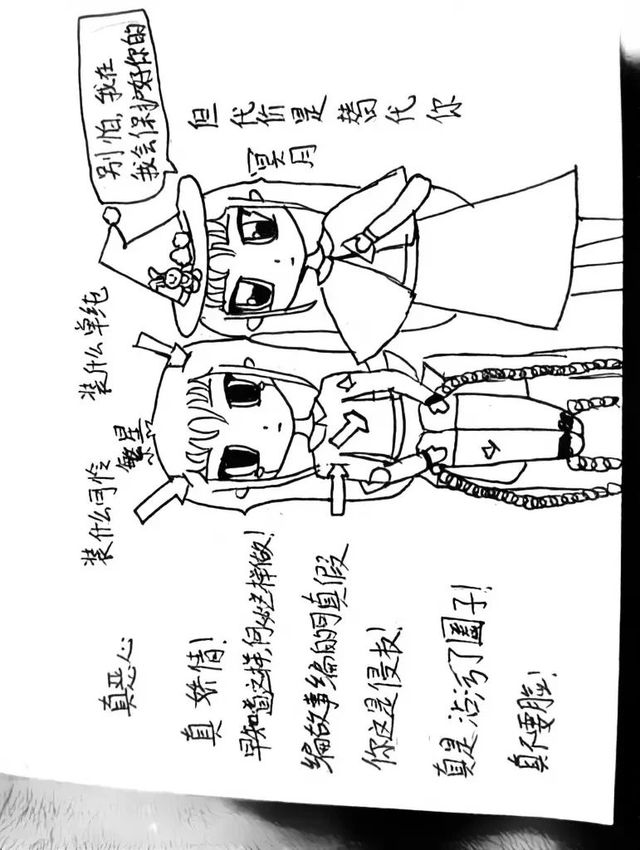 真恶心
真矫情！
早知道这样，何必这样做！
编故事编的可真假
你这是侵权！
真是沾污了圈子！
真不要脸！
装什么可怜
装什么单纯
繁星
别怕，我在
我会保护好你的
冥月
但代价是替代你